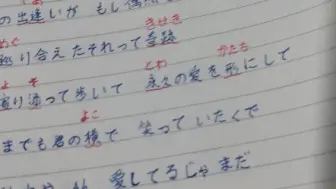 の出逢いが もし偶然
きせき
巡り合えたそれって奇跡
よ そ とわ かたち
り添って歩いて 永久の愛を形にして
よこ
までも君の横で 笑っていたくて
愛してるじゃまだ